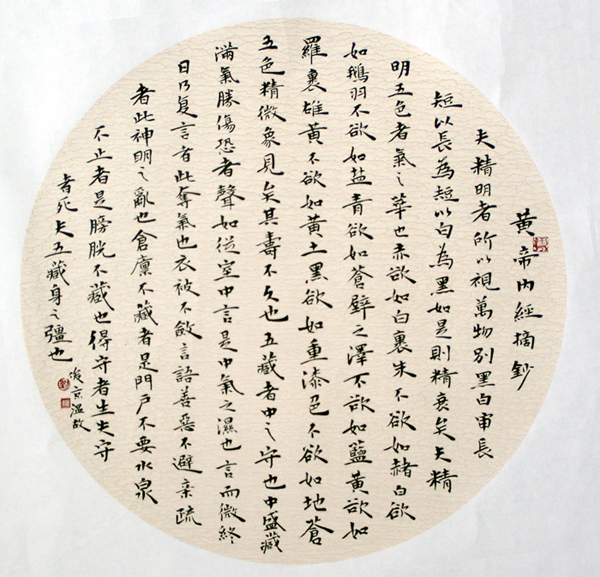 黄帝内經摘鈔
夫精明者所以視萬物別黑白審長
短以長為短以白為黑如是則精衰矣夫精
明五色者氣之華也赤欲如白裹朱不欲如赭白欲
如鵝羽不欲如盐青欲如蒼璧之澤不欲如藍黄欲如
羅裹雄黄不欲如黄土黑欲如重漆色不欲如地蒼
五色精微象見矣其壽不久也五藏者中之守也中盛藏
滿氣勝傷恐者聲如從室中言是中氣之濕也言而微終
日乃复言者此奪氣也衣被不斂言語善惡不避親疏
者此神明之亂也倉廩不藏者是門户不要水泉
不止者是膀胱不藏也得守者生失守
者死夫五藏身之彊也
京温故